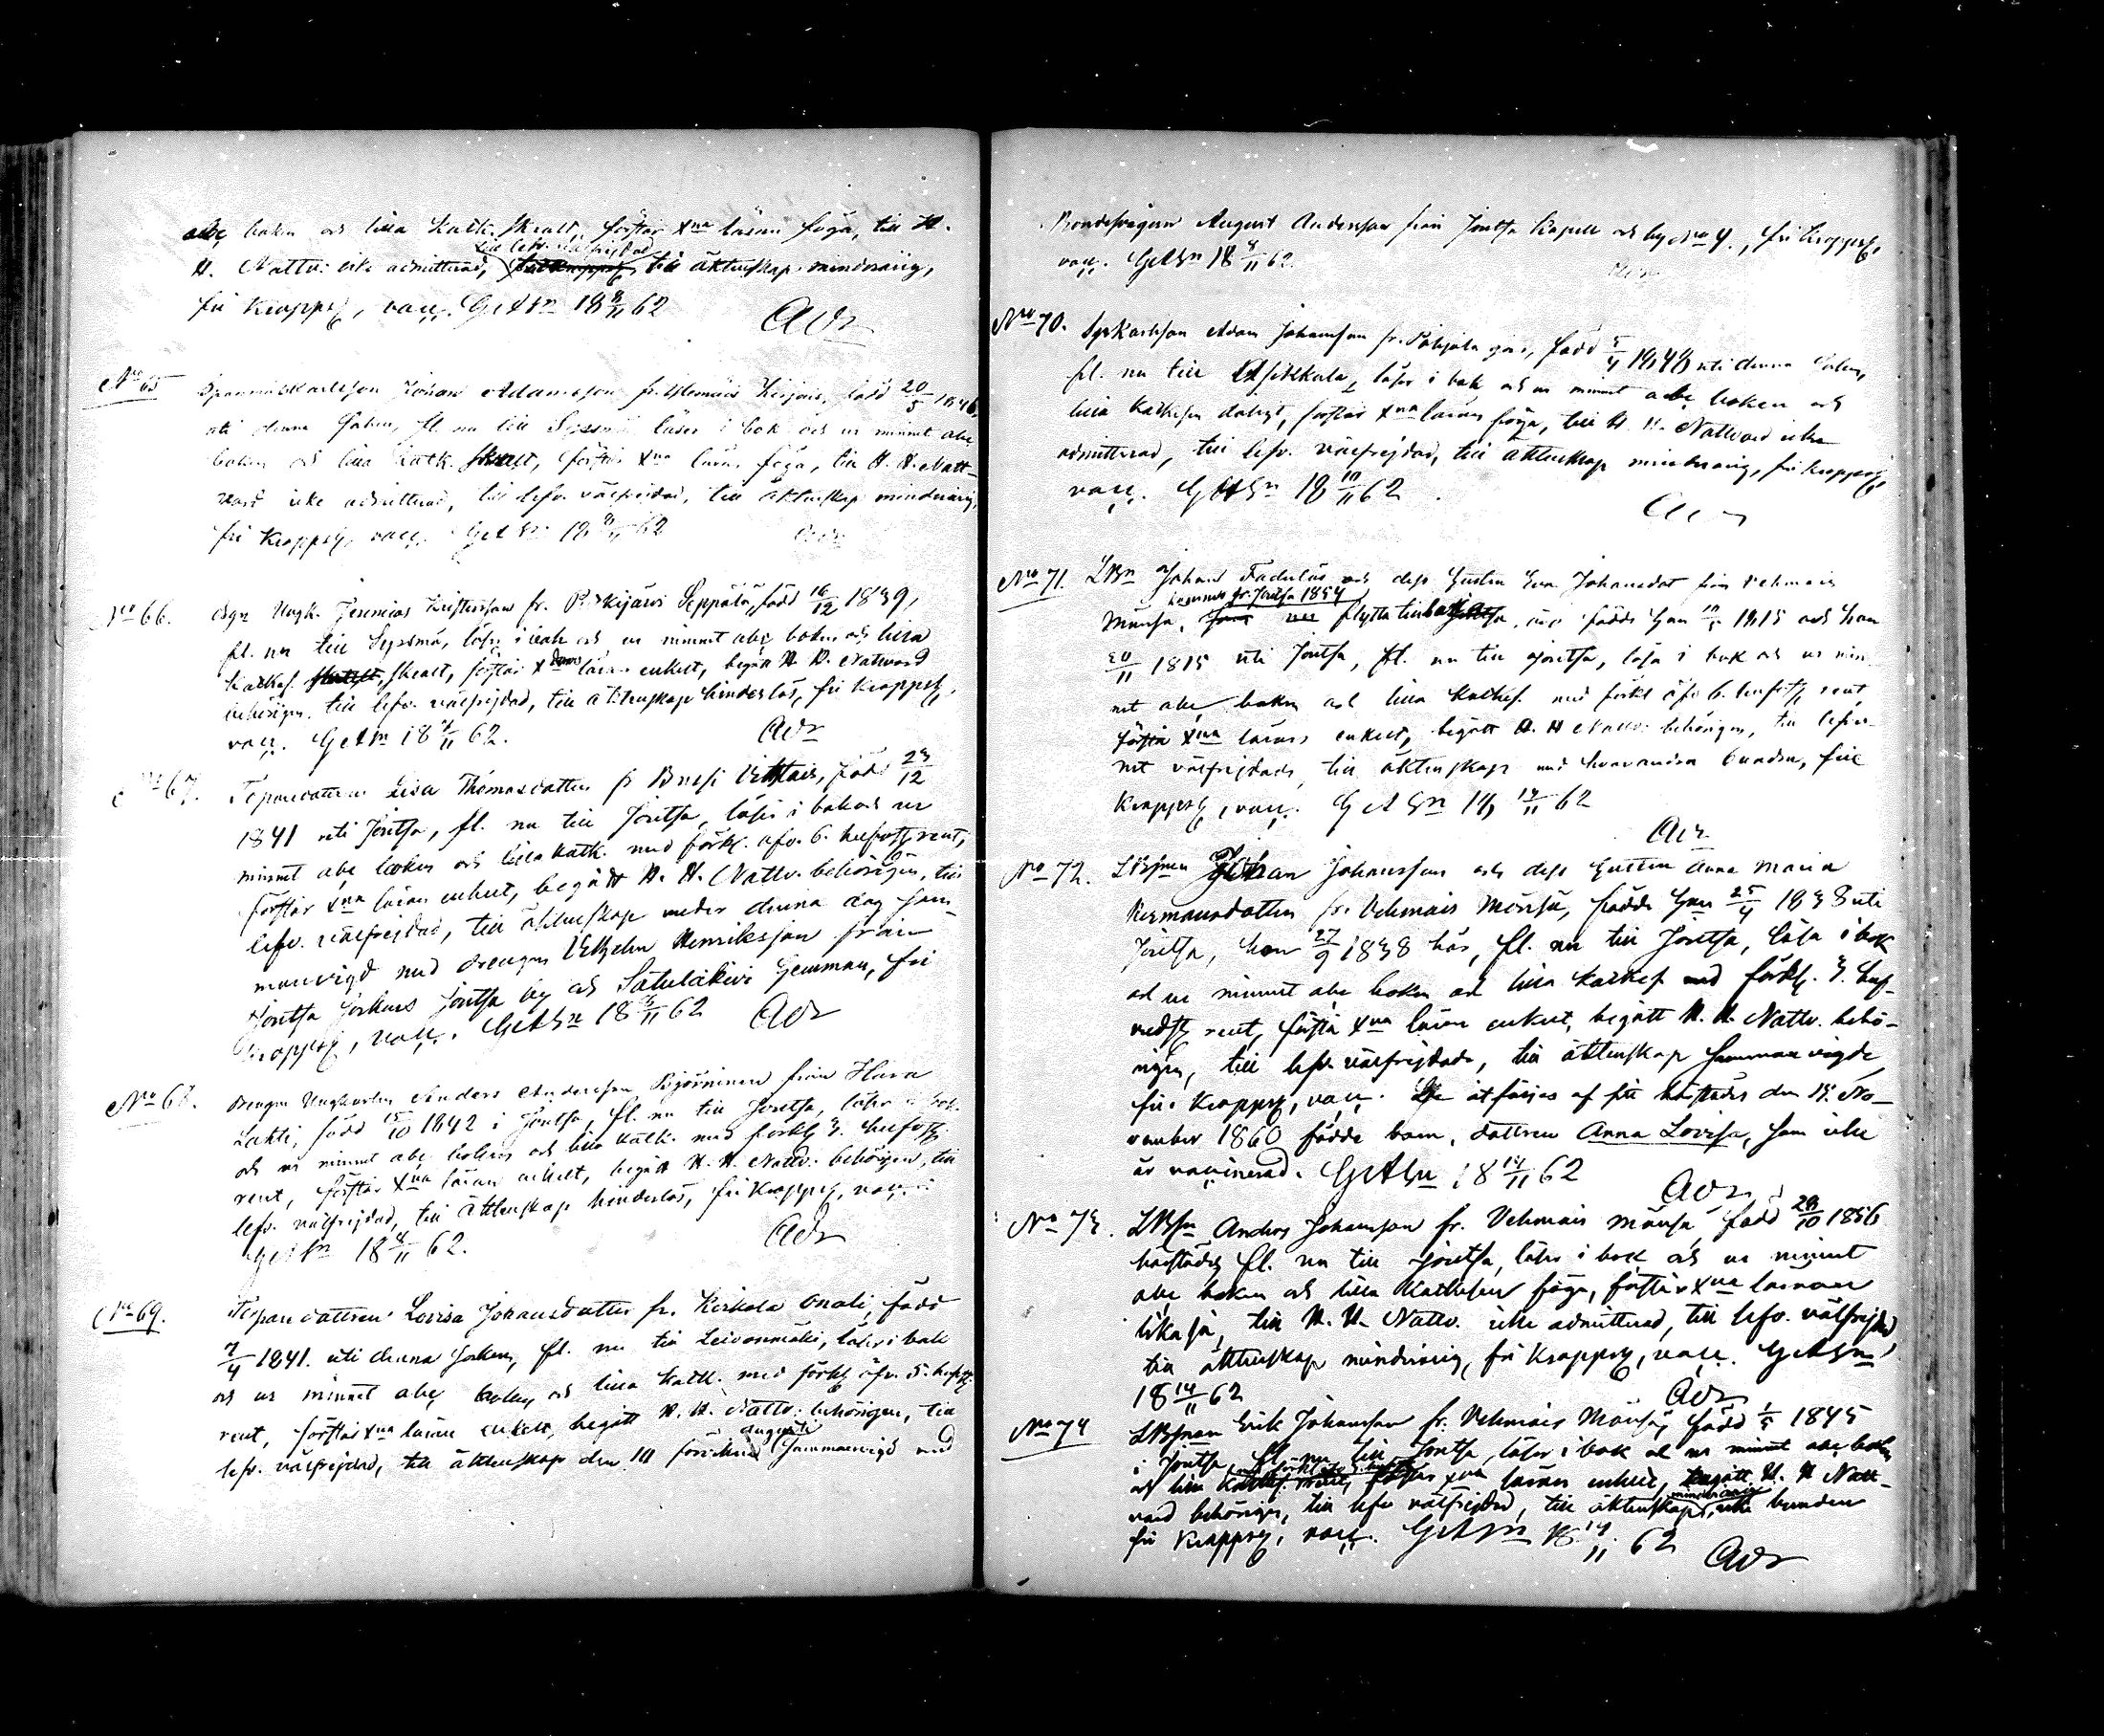 abc boken och lilla Katk. skralt, förstår Xna läran föga, till H.
till lefv. välfrejdad
H. Nattv. icke admitterad, till äktenskap minderårig,
fri Kroppsf, vacc. GetSn 18 8/11 62
Adr
No 65 Johan Adamsson fr. född 20/5 1846
uti denna Socken, fl. nu till Sysmä läser i bok och ur minnet abc
boken och lilla Katk. skralt, förstår Xna läran föga, till H. H. Natt-
vard icke admitterad, till lefv. välfrejdad, till äktenskap minderårig,
fri Kroppsf, vacc. GetSn 18 8/11 62
Adr
No 66. Ungk. Jeremias Christersson fr. Seppälä, född 16/12 1839,
fl. nu till Sysmä, läser i bok och ur minnet abc boken och lilla
Katkes. skralt, förstår X läran enkelt, begått H. H. Nattvard
behörigen, till lefv. välfrejdad, till äktenskap hinderlös, fri Kroppsf,
vacc. GetSn 18 8/11 62.
Adr
No 67. Torparedottren Lisa Thomasdotter fr född 23/12
1841 uti Joutsa, fl. nu till Joutsa, läser i bok och ur
minnet abc boken och lilla Katk. med förkl. öfv. 6. hufvudst. rent,
förstår Xna läran enkelt, begått H. H. Nattv. behörigen, till
lefv. välfrejdad, till äktenskap under denna dag sam-
manvigd med drengen Wilhelm Henriksson från
Joutsa Sockens Joutsa by och Satulakivi hemman, fri
Kroppsf, vacc. GetSn 18 11 62 Adr
No 68. Drengen Ungkarlen Anders Andersson Björninen från Hara
Lahti, född 15/10 1842 i Joutsa, fl. nu till Joutsa, läser i bok
och ur minnet abc boken och lilla Katk. med förkl. 3. hufvudst.
rent, förstår Xna läran enkelt, begått H. H. Nattv. behörigen, till
lefv. välfrejdad, till äktenskap hinderlös, fri Kroppsf, vacc.
GetSn 18 8/11 62.
Adr
No 69. Torparedottren Lovisa Johansdotter fr. Kirkola Onali, född
7/4 1841. uti denna Socken, fl. nu till Leivonmäki, läser i bok
och ur minnet abc boken och lilla Katk. med förkl. öfv. 5. hufvst.
rent, förstår Xna läran enkelt, begått H. H. Nattv. behörigen, till
augusti
lefv. välfrejdad, till äktenskap den 10 Sammanvigd med
Bondedrengen August Andersson från Joutsa Kapell och by No 4., fri Kroppsf,
vacc. GetSn 18 8/11 62.
Adr
No 70. Adam Johansson fr. Pohjola gård, född 5/4 1848 uti denna Socken,
fl. nu till läser i bok och ur minnet abc boken och
lilla Katkesen dåligt, förstår Xna läran föga, till H. H. Nattvard icke
admitterad, till lefv. välfrejdad, till äktenskap minderårig, fri Kroppsf,
vacc. GetSn 18 10/11 62
Adr
No 71. Johan Fadelús och dess hustru Eva Johansdot från Vehmais
kommo fr. Joutsa 1854
Mansa, flytta tillbaka, födde han 1815 och hon
20/11 1815 uti Joutsa, fl. nu till Joutsa, läsa i bok och ur min-
net abc boken och lilla Katkes. med förkl. öfv. 6. hufvst. rent
förstå Xna läran enkelt, begått H. H. Nattv. behörigen, till lefver-
net välfrejdade, till äktenskap med hvarandra bundna, frie
Kroppsf, vacc. GetSn 18 14/11 62
Adr
No 72. Johan Johansson och dess hustru Anna Maria
Hermansdotter fr. Vehmais Mansa, födde han 25/4 1838 uti
Joutsa, hon 27/9 1838 här, fl. nu till Joutsa, läsa i bok
och ur minnet abc boken och lilla Katkes. med förkl. 3. huf-
vudst. rent, förstå Xna läran enkelt, begått H. H. Nattv. behö-
rigen, till lefv. välfrejdade, till äktenskap sammanvigde
fri Kroppsf, vacc. De åtföljes af sitt härstädes den 15. No-
vember 1860 födda barn, dottren Anna Lovisa, som icke
är vaccinerad. GetSn 18 14/11 62
Adr
No 73. Anders Johansson fr. Vehmais Mansa, född 28/10 1856
härstädes fl. nu till Joutsa, läser i bok och ur minnet
abc boken och lilla Kathesen föga, förstår Xna läran
likaså, till H. H. Nattv. icke admitterad, till lefv. välfrejdad
till äktenskap minderårig, fri Kroppsf, vacc. GetSn
18 14/11 62
Adr
No 74 Erik Johansson fr. Vehmais Mansa, född 1/5 1845
i Joutsa, fl. nu till Joutsa, läser i bok och ur minnet abc boken
och lilla Katkes. förstår Xna läran enkelt, begått H. H. Natt-
minderårig
vard behörigen, till lefv välfrejdad, till äktenskap icke bunden
fri Kroppsf, vacc. GetSn 18 14/11 62
Adr